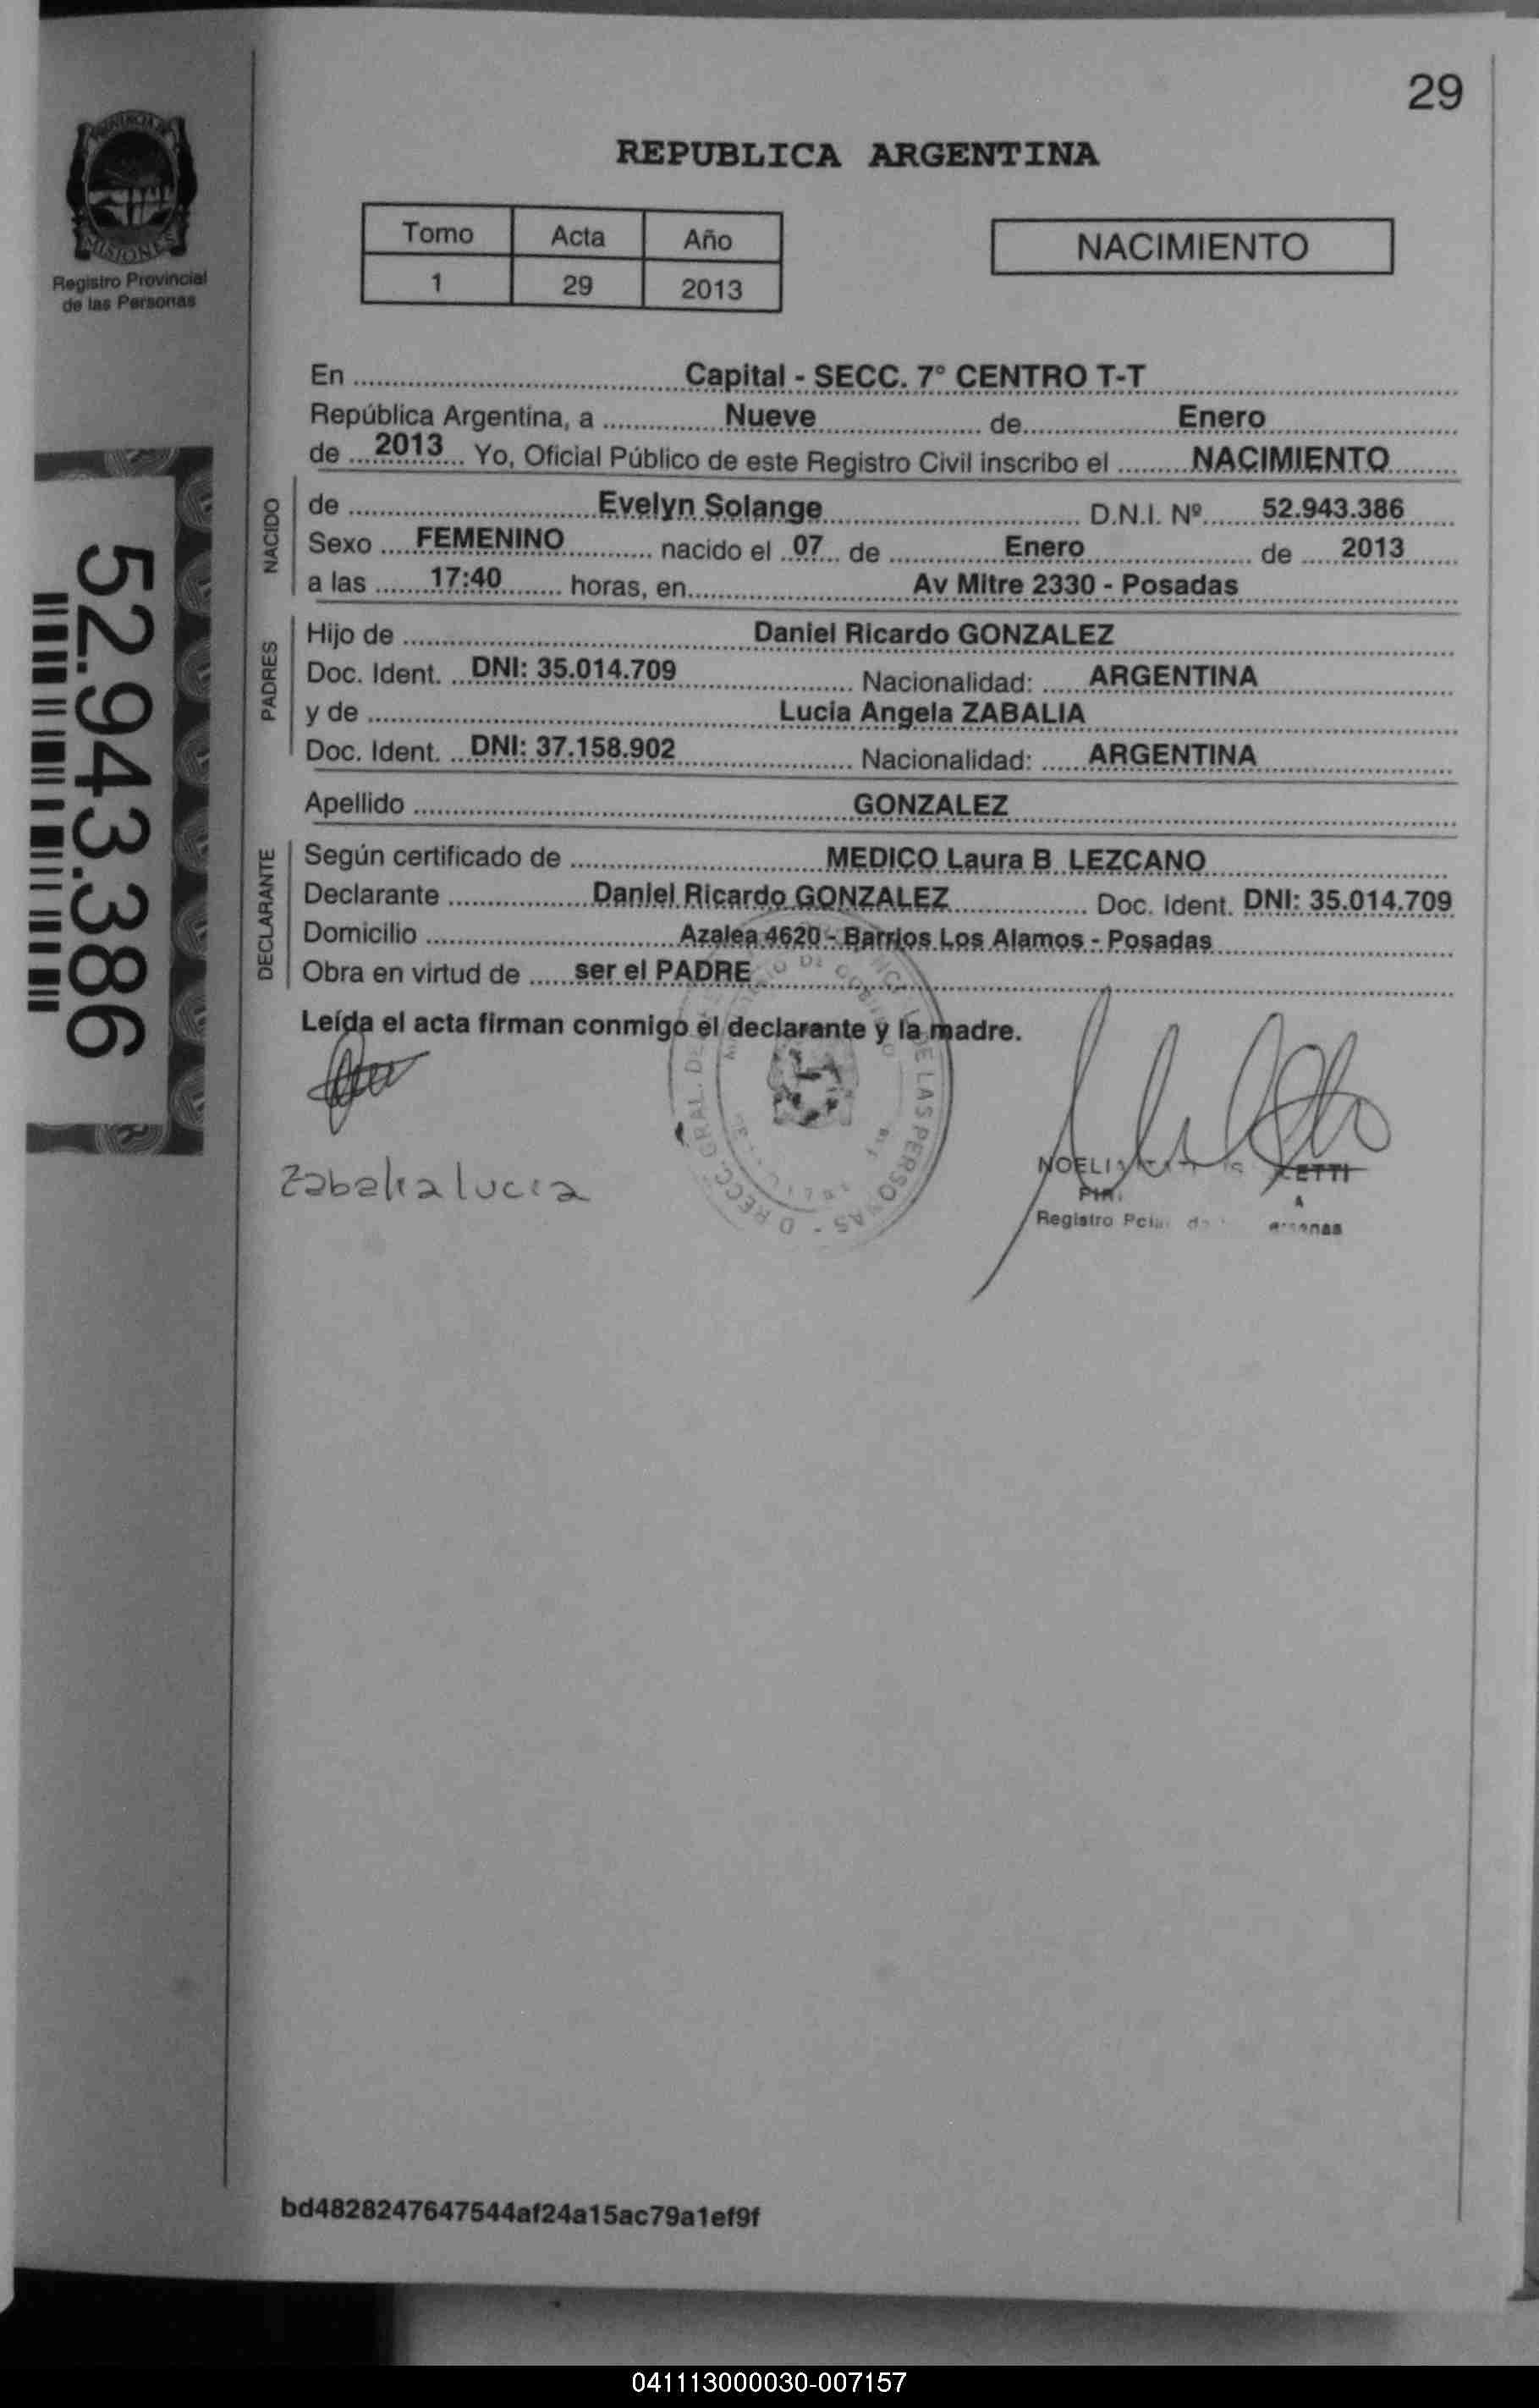 29
PROVINCIA DE
MISIONES
Registro Provincial
de las Personas
REPUBLICA ARGENTINA
Tomo Acta Año
1 29 2013
NACIMIENTO
En Capital - SECC. 7° CENTRO T-T
República Argentina, a Nueve de Enero
de 2013 Yo, Oficial Público de este Registro Civil inscribo el NACIMIENTO
NACIDO
de Evelyn Solange D.N.I. Nº 52.943.386
Sexo FEMENINO nacido el 07 de Enero de 2013
a las 17:40 horas, en Av Mitre 2330 - Posadas
PADRES
Hijo de Daniel Ricardo GONZALEZ
Doc. Ident. DNI: 35.014.709 Nacionalidad: ARGENTINA
y de Lucia Angela ZABALIA
Doc. Ident. DNI: 37.158.902 Nacionalidad: ARGENTINA
Apellido GONZALEZ
DECLARANTE
Según certificado de MEDICO Laura B LEZCANO
Declarante Daniel Ricardo GONZALEZ Doc. Ident. DNI: 35.014.709
Domicilio Azalea 4620 - Barrios Los Alamos - Posadas
Obra en virtud de ser el PADRE
Leída el acta firman conmigo el declarante y la madre.
52.943.386
Zabalia Lucia
DE LAS PERSONAS
Registro
bd4828247647544af24a15ac79a1ef9f
041113000030-007157